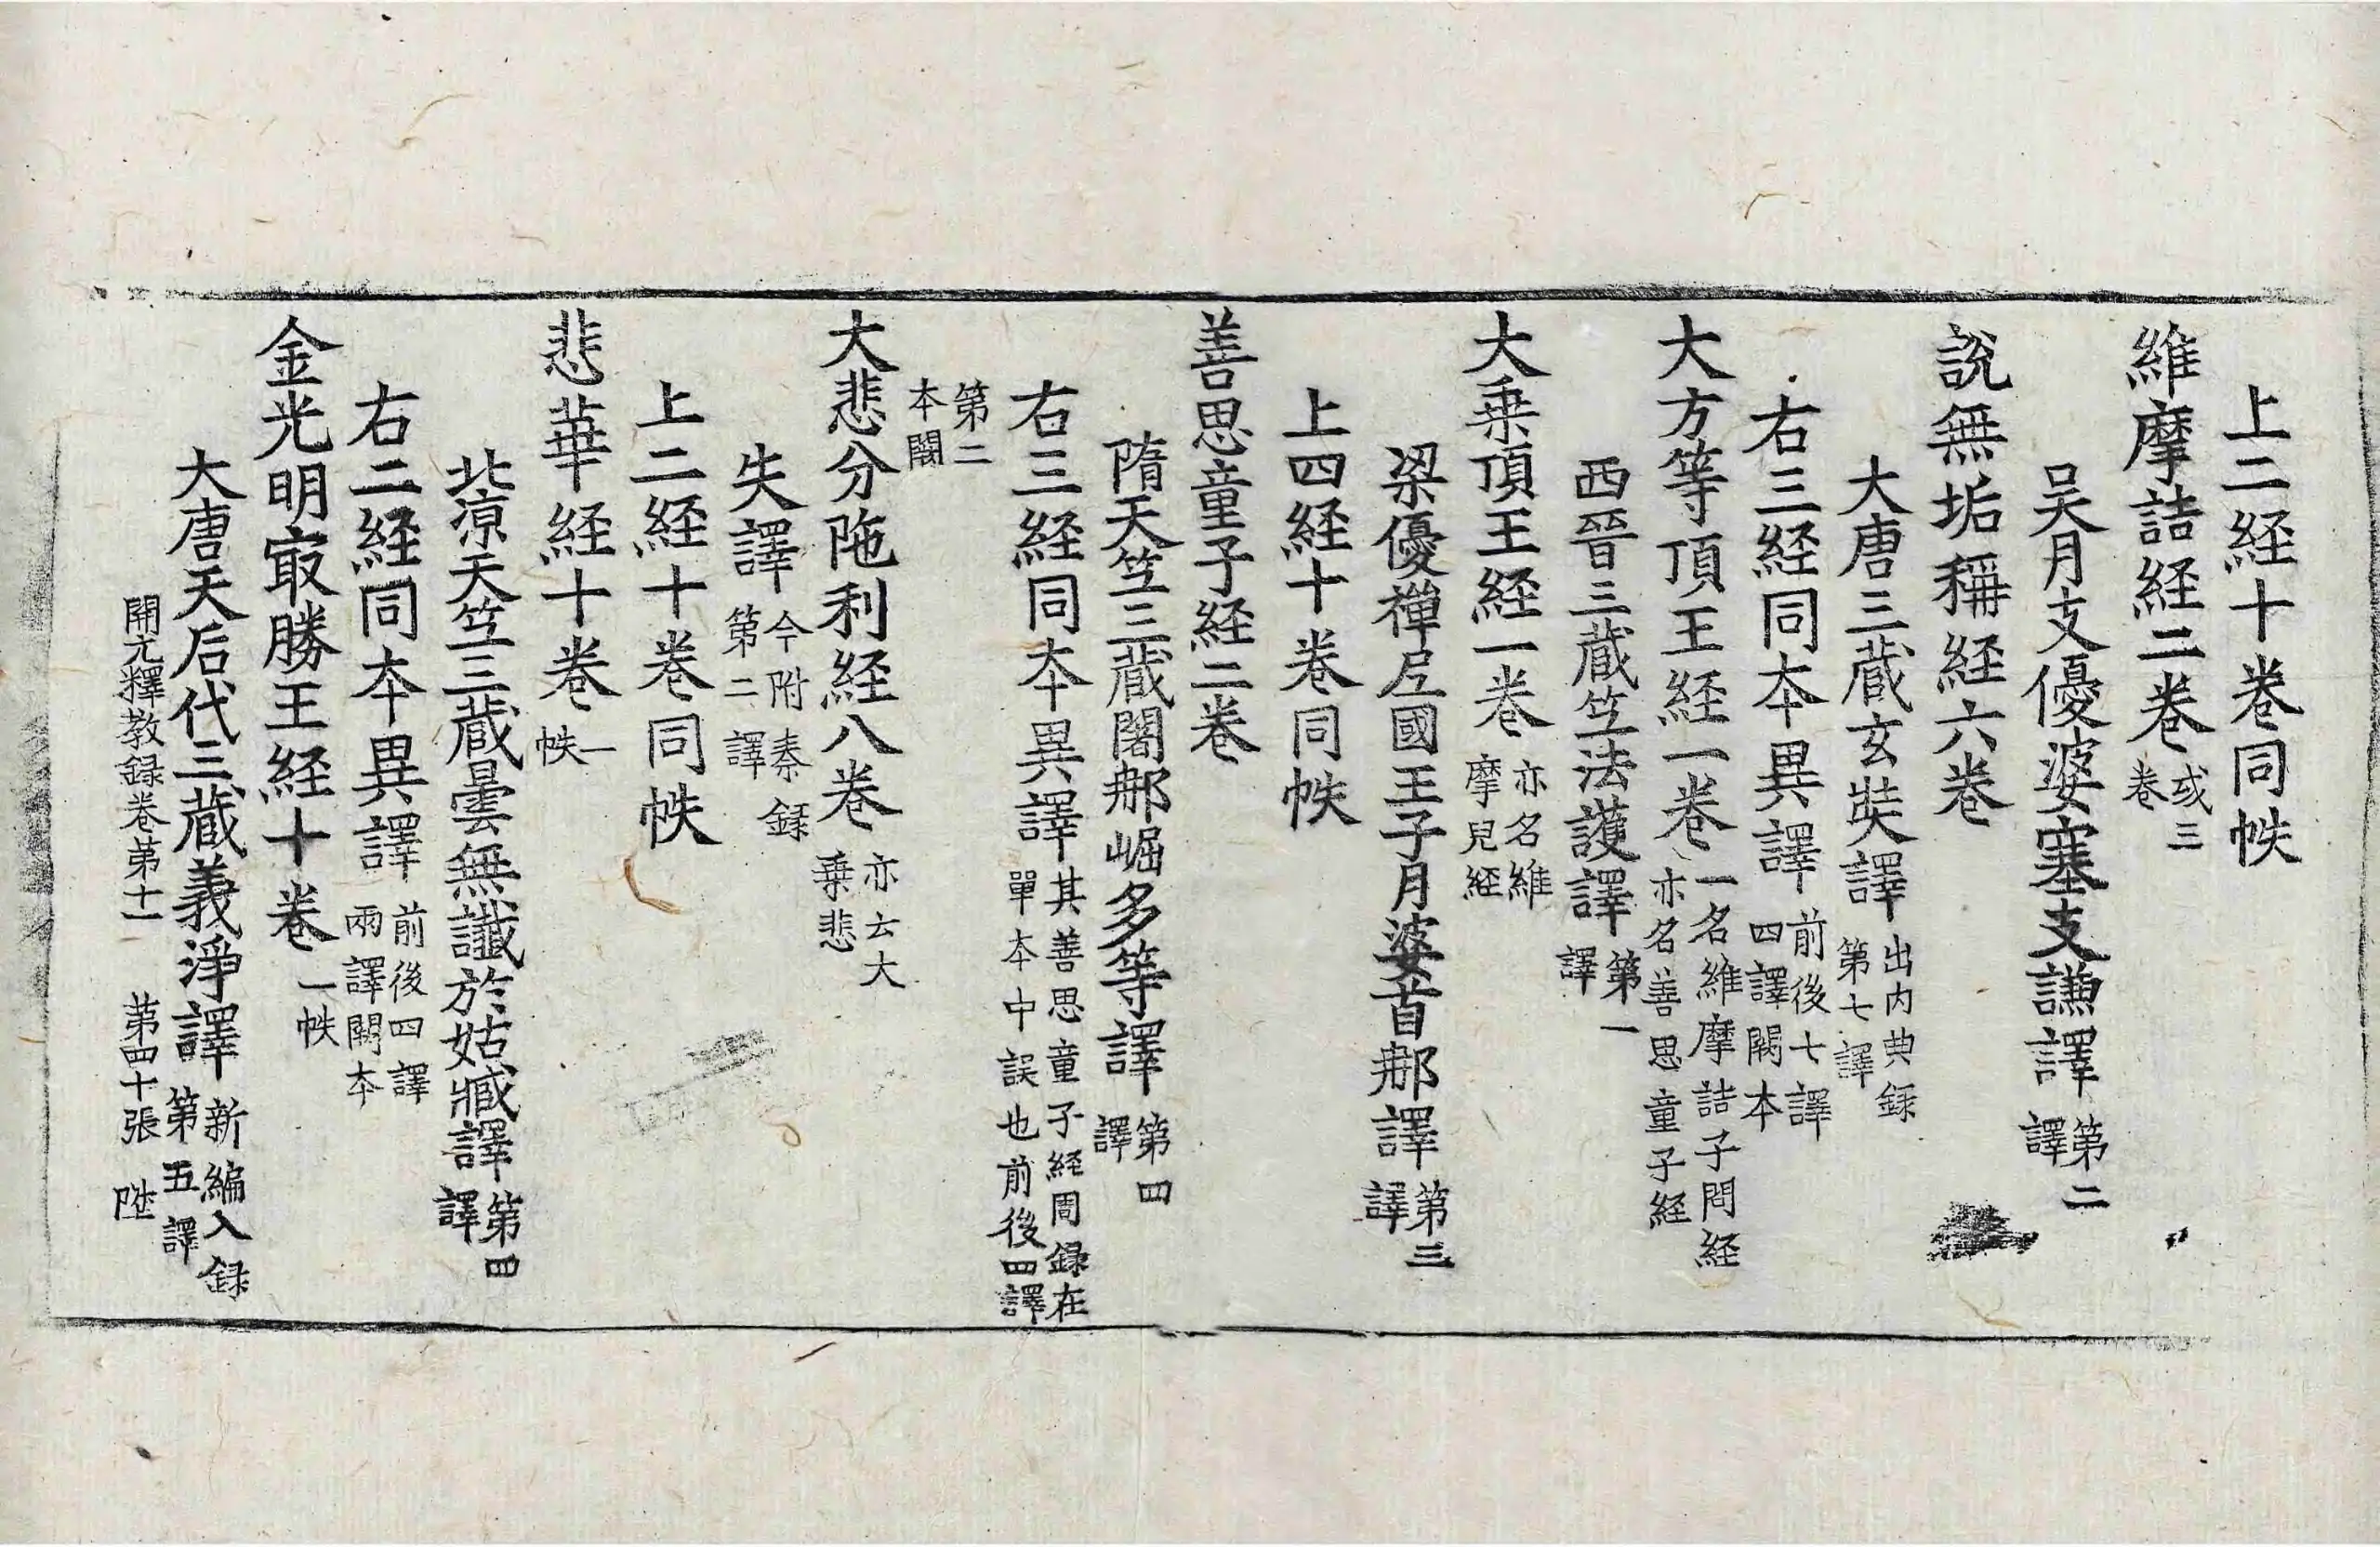 上二経十卷同帙
維摩詰経二卷 或三卷
吴月支優婆塞支謙譯 第二譯
說無垢稱経六卷
大唐三蔵玄奘譯 出内典録第七譯
右三経同本異譯 前後七譯四譯闕本
大方等頂王経一卷 一名維摩詰子問経亦名善思童子経
西晉三蔵笁法護譯 第一譯
大乗頂王経一卷 亦名維摩兒経
梁優禪尼國王子月婆首那譯 第三譯
上四経十卷同帙
善思童子経二卷
隋天笁三蔵闍那崛多等譯 第四譯
右三経同本異譯 其善思童子経周録在單本中誤也前後四譯
第二本闕
大悲分陁利経八卷 亦云大乗悲
失譯 今附秦録第二譯
上二経十卷同帙
悲華経十卷 一帙
北涼天笁三蔵曇無讖於姑臧譯 第四譯
右二経同本異譯 前後四譯兩譯闕本
金光明㝡勝王経十卷 一帙
大唐天后代三蔵義淨譯 新編入録第五譯
開元釋教録卷第十一 第四十張 陞